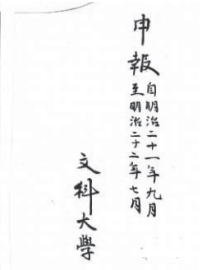 申報
自明治二十一年九月
至明治二十二年七月
文科大學